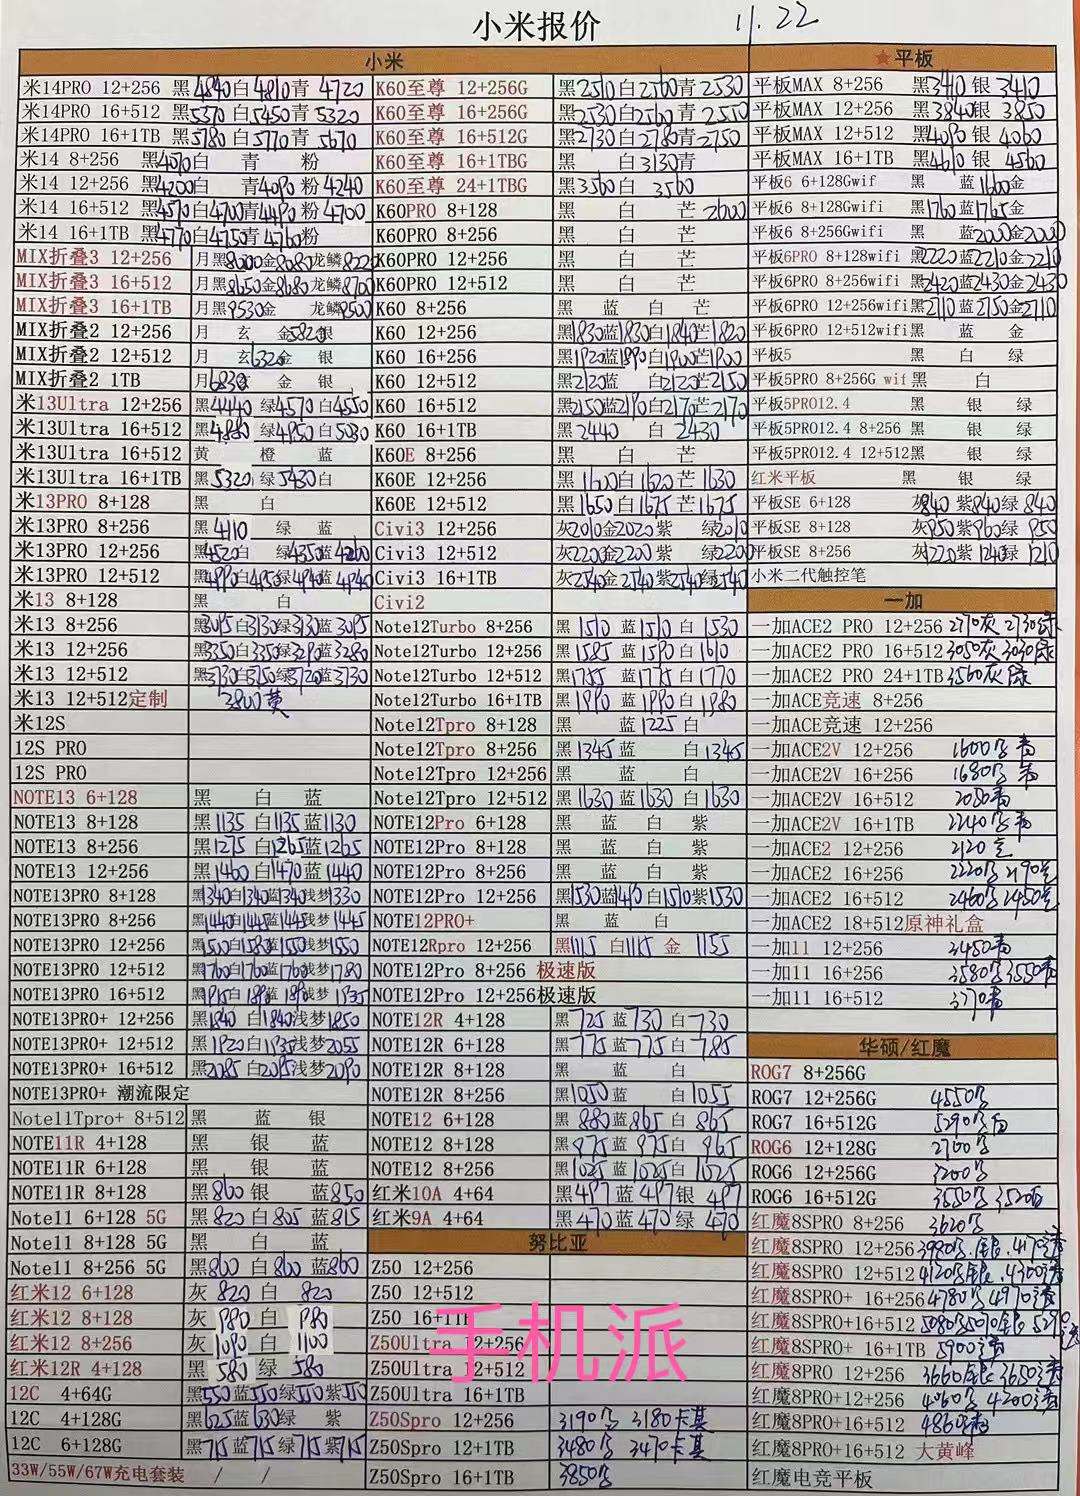 小米报价 11.22
小米
米14PRO 12+256 黑4840白4810青 4720
米14PRO 16+512 黑5370 白5450青 5320
米14PRO 16+1TB 黑5780 白5770青 5670
米14 8+256 黑4070白 青 粉
米14 12+256 黑4200白 青4090 粉4240
米14 16+512 黑4570白4700青4490粉4700
米14 16+1TB 黑4770白4750青4760粉
MIX折叠3 12+256 月黑8000金8080龙鳞8220
MIX折叠3 16+512 月黑8650金8680龙鳞8700
MIX折叠3 16+1TB 月黑9530金 龙鳞9500
MIX折叠2 12+256 月 玄 金5820银
MIX折叠2 12+512 月 玄6320金 银
MIX折叠2 1TB 月6830玄 金 银
米13Ultra 12+256 黑4440 绿4570白4550
米13Ultra 16+512 黑4880 绿4950白5030
米13Ultra 16+512 黄 橙 蓝
米13Ultra 16+1TB 黑5320绿5430白
米13PRO 8+128 黑 白
米13PRO 8+256 黑4110 绿 蓝
米13PRO 12+256 黑4520白 绿4350蓝4260
米13PRO 12+512 黑4990白4950绿4940蓝4940
米13 8+128 黑 白
米13 8+256 黑3095白3130绿3130蓝3095
米13 12+256 黑3350白3350绿3290蓝3280
米13 12+512 黑3730白3750绿3720蓝3730
米13 12+512定制 3800黄
米12S
12S PRO
12S PRO
NOTE13 6+128 黑 白 蓝
NOTE13 8+128 黑1135 白1135蓝1130
NOTE13 8+256 黑1275 白1265蓝1265
NOTE13 12+256 黑1460 白1470蓝1440
NOTE13PRO 8+128 黑1340白1340蓝1340浅梦1330
NOTE13PRO 8+256 黑1440白1445蓝1445浅梦1445
NOTE13PRO 12+256 黑1550白1580蓝1550浅梦1550
NOTE13PRO 12+512 黑1760白1760蓝1760浅梦1780
NOTE13PRO 16+512 黑1915白1890蓝1890浅梦1935
NOTE13PRO+ 12+256 黑1840 白1840浅梦1850
NOTE13PRO+ 12+512 黑1920白1935浅梦2055
NOTE13PRO+ 16+512 黑2085 白2095浅梦2090
NOTE13PRO+ 潮流限定
Note11Tpro+ 8+512 黑 蓝 银
NOTE11R 4+128 黑 银 蓝
NOTE11R 6+128 黑 银 蓝
NOTE11R 8+128 黑860 银 蓝850
Note11 6+128 5G 黑820 白805 蓝815
Note11 8+128 5G 黑 白 蓝
Note11 8+256 5G 黑860 白860 蓝860
红米12 6+128 灰 820 白 820
红米12 8+128 灰 980 白 980
红米12 8+256 灰 1090 白 1100
红米12R 4+128 黑 580 绿 580
12C 4+64G 黑550蓝550绿550紫550
12C 4+128G 黑625蓝630绿 紫
12C 6+128G 黑715蓝715绿715紫715
33W/55W/67W充电套装 / /
K60至尊 12+256G 黑2510白2560青2530
K60至尊 16+256G 黑2530白2560青2550
K60至尊 16+512G 黑2730白2780青2750
K60至尊 16+1TBG 黑 白3130青
K60至尊 24+1TBG 黑3560白 3560
K60PRO 8+128 黑 白 芒2600
K60PRO 8+256 黑 白 芒
K60PRO 12+256 黑 白 芒
K60PRO 12+512 黑 白 芒
K60 8+256 黑 蓝 白 芒
K60 12+256 黑1830蓝1830白1840芒1820
K60 16+256 黑1920蓝1890白1900芒1900
K60 12+512 黑2120蓝 白2120芒2150
K60 16+512 黑2150蓝2190白2170芒2170
K60 16+1TB 黑2440 白 2430
K60E 8+256 黑 白 芒
K60E 12+256 黑1600白1620芒1630
K60E 12+512 黑1650白1675芒1675
Civi3 12+256 灰2010金2020紫 绿2010
Civi3 12+512 灰2200金2200紫 绿2200
Civi3 16+1TB 灰2540金2540紫2540绿2540
Civi2
Note12Turbo 8+256 黑 1510 蓝1510 白 1530
Note12Turbo 12+256 黑 1585 蓝1590 白1610
Note12Turbo 12+512 黑1755 蓝1775 白1770
Note12Turbo 16+1TB 黑1990 蓝1990 白1980
Note12Tpro 8+128 黑 蓝1225白
Note12Tpro 8+256 黑1345蓝 白1345
Note12Tpro 12+256 黑 蓝 白
Note12Tpro 12+512 黑1630蓝1630 白1630
NOTE12Pro 6+128 黑 蓝 白 紫
NOTE12Pro 8+128 黑 蓝 白 紫
NOTE12Pro 8+256 黑 蓝 白 紫
NOTE12Pro 12+256 黑1530蓝1490白1510紫1530
NOTE12PRO+ 黑 蓝 白
NOTE12Rpro 12+256 黑1115 白1115 金 1155
NOTE12Pro 8+256 极速版
NOTE12Pro 12+256极速版
NOTE12R 4+128 黑725 蓝730 白730
NOTE12R 6+128 黑775蓝775白785
NOTE12R 8+128 黑 蓝 白
NOTE12R 8+256 黑1050蓝 白1055
NOTE12 6+128 黑 880蓝865 白 865
NOTE12 8+128 黑 975 蓝975白 965
NOTE12 8+256 黑1025蓝1025白1025
红米10A 4+64 黑497蓝497银 497
红米9A 4+64 黑470蓝470绿 470
努比亚
Z50 12+256
Z50 12+512
Z50 16+1TB
Z50Ultra 12+256
Z50Ultra 12+512
Z50Ultra 16+1TB
Z50Spro 12+256 3190 3180卡其
Z50Spro 12+1TB 3480 3470卡其
Z50Spro 16+1TB 3850
★平板
平板MAX 8+256 黑3410 银 3410
平板MAX 12+256 黑3840银 3850
平板MAX 12+512 黑4090 银 4060
平板MAX 16+1TB 黑4610 银 4560
平板6 6+128Gwif 黑 蓝1600金
平板6 8+128Gwifi 黑1760蓝1765金
平板6 8+256Gwifi 黑 蓝2000金2000
平板6PRO 8+128wifi 黑2220蓝2210金2210
平板6PRO 8+256wifi 黑2420蓝2430金2430
平板6PRO 12+256wifi黑2710蓝2750金2710
平板6PRO 12+512wifi黑 蓝 金
平板5 黑 白 绿
平板5PRO 8+256G wif黑 白
平板5PRO12.4 黑 银 绿
平板5PRO12.4 8+256 黑 银 绿
平板5PRO12.4 12+512黑 银 绿
红米平板 黑 银 绿
平板SE 6+128 灰840 紫840绿 840
平板SE 8+128 灰950紫960绿 950
平板SE 8+256 灰1220紫1240绿 1210
小米二代触控笔
一加
一加ACE2 PRO 12+256 2770灰 2730绿
一加ACE2 PRO 16+512 3050灰3030绿
一加ACE2 PRO 24+1TB 3560灰绿
一加ACE竞速 8+256
一加ACE竞速 12+256
一加ACE2V 12+256 1600 青
一加ACE2V 16+256 1680 青
一加ACE2V 16+512 2080青
一加ACE2V 16+1TB 2240 青
一加ACE2 12+256 2120
一加ACE2 16+256 2220 2190
一加ACE2 16+512 2460 2450
一加ACE2 18+512原神礼盒
一加11 12+256 3450青
一加11 16+256 3580 3550青
一加11 16+512 3770青
华硕/红魔
ROG7 8+256G
ROG7 12+256G 4550
ROG7 16+512G 5290 白
ROG6 12+128G 2700
ROG6 12+256G 3200
ROG6 16+512G 3550 3520白
红魔8SPRO 8+256 3620
红魔8SPRO 12+256 3990
红魔8SPRO 12+512 4120 4300透
红魔8SPRO+ 16+256 4780 4970透
红魔8SPRO+16+512 5090 5290透
红魔8SPRO+ 16+1TB 5900
红魔8PRO 12+256 3660 3650
红魔8PRO+12+256 4060 4200
红魔8PRO+16+512 4860
红魔8PRO+16+512 大黄峰
红魔电竞平板
手机派